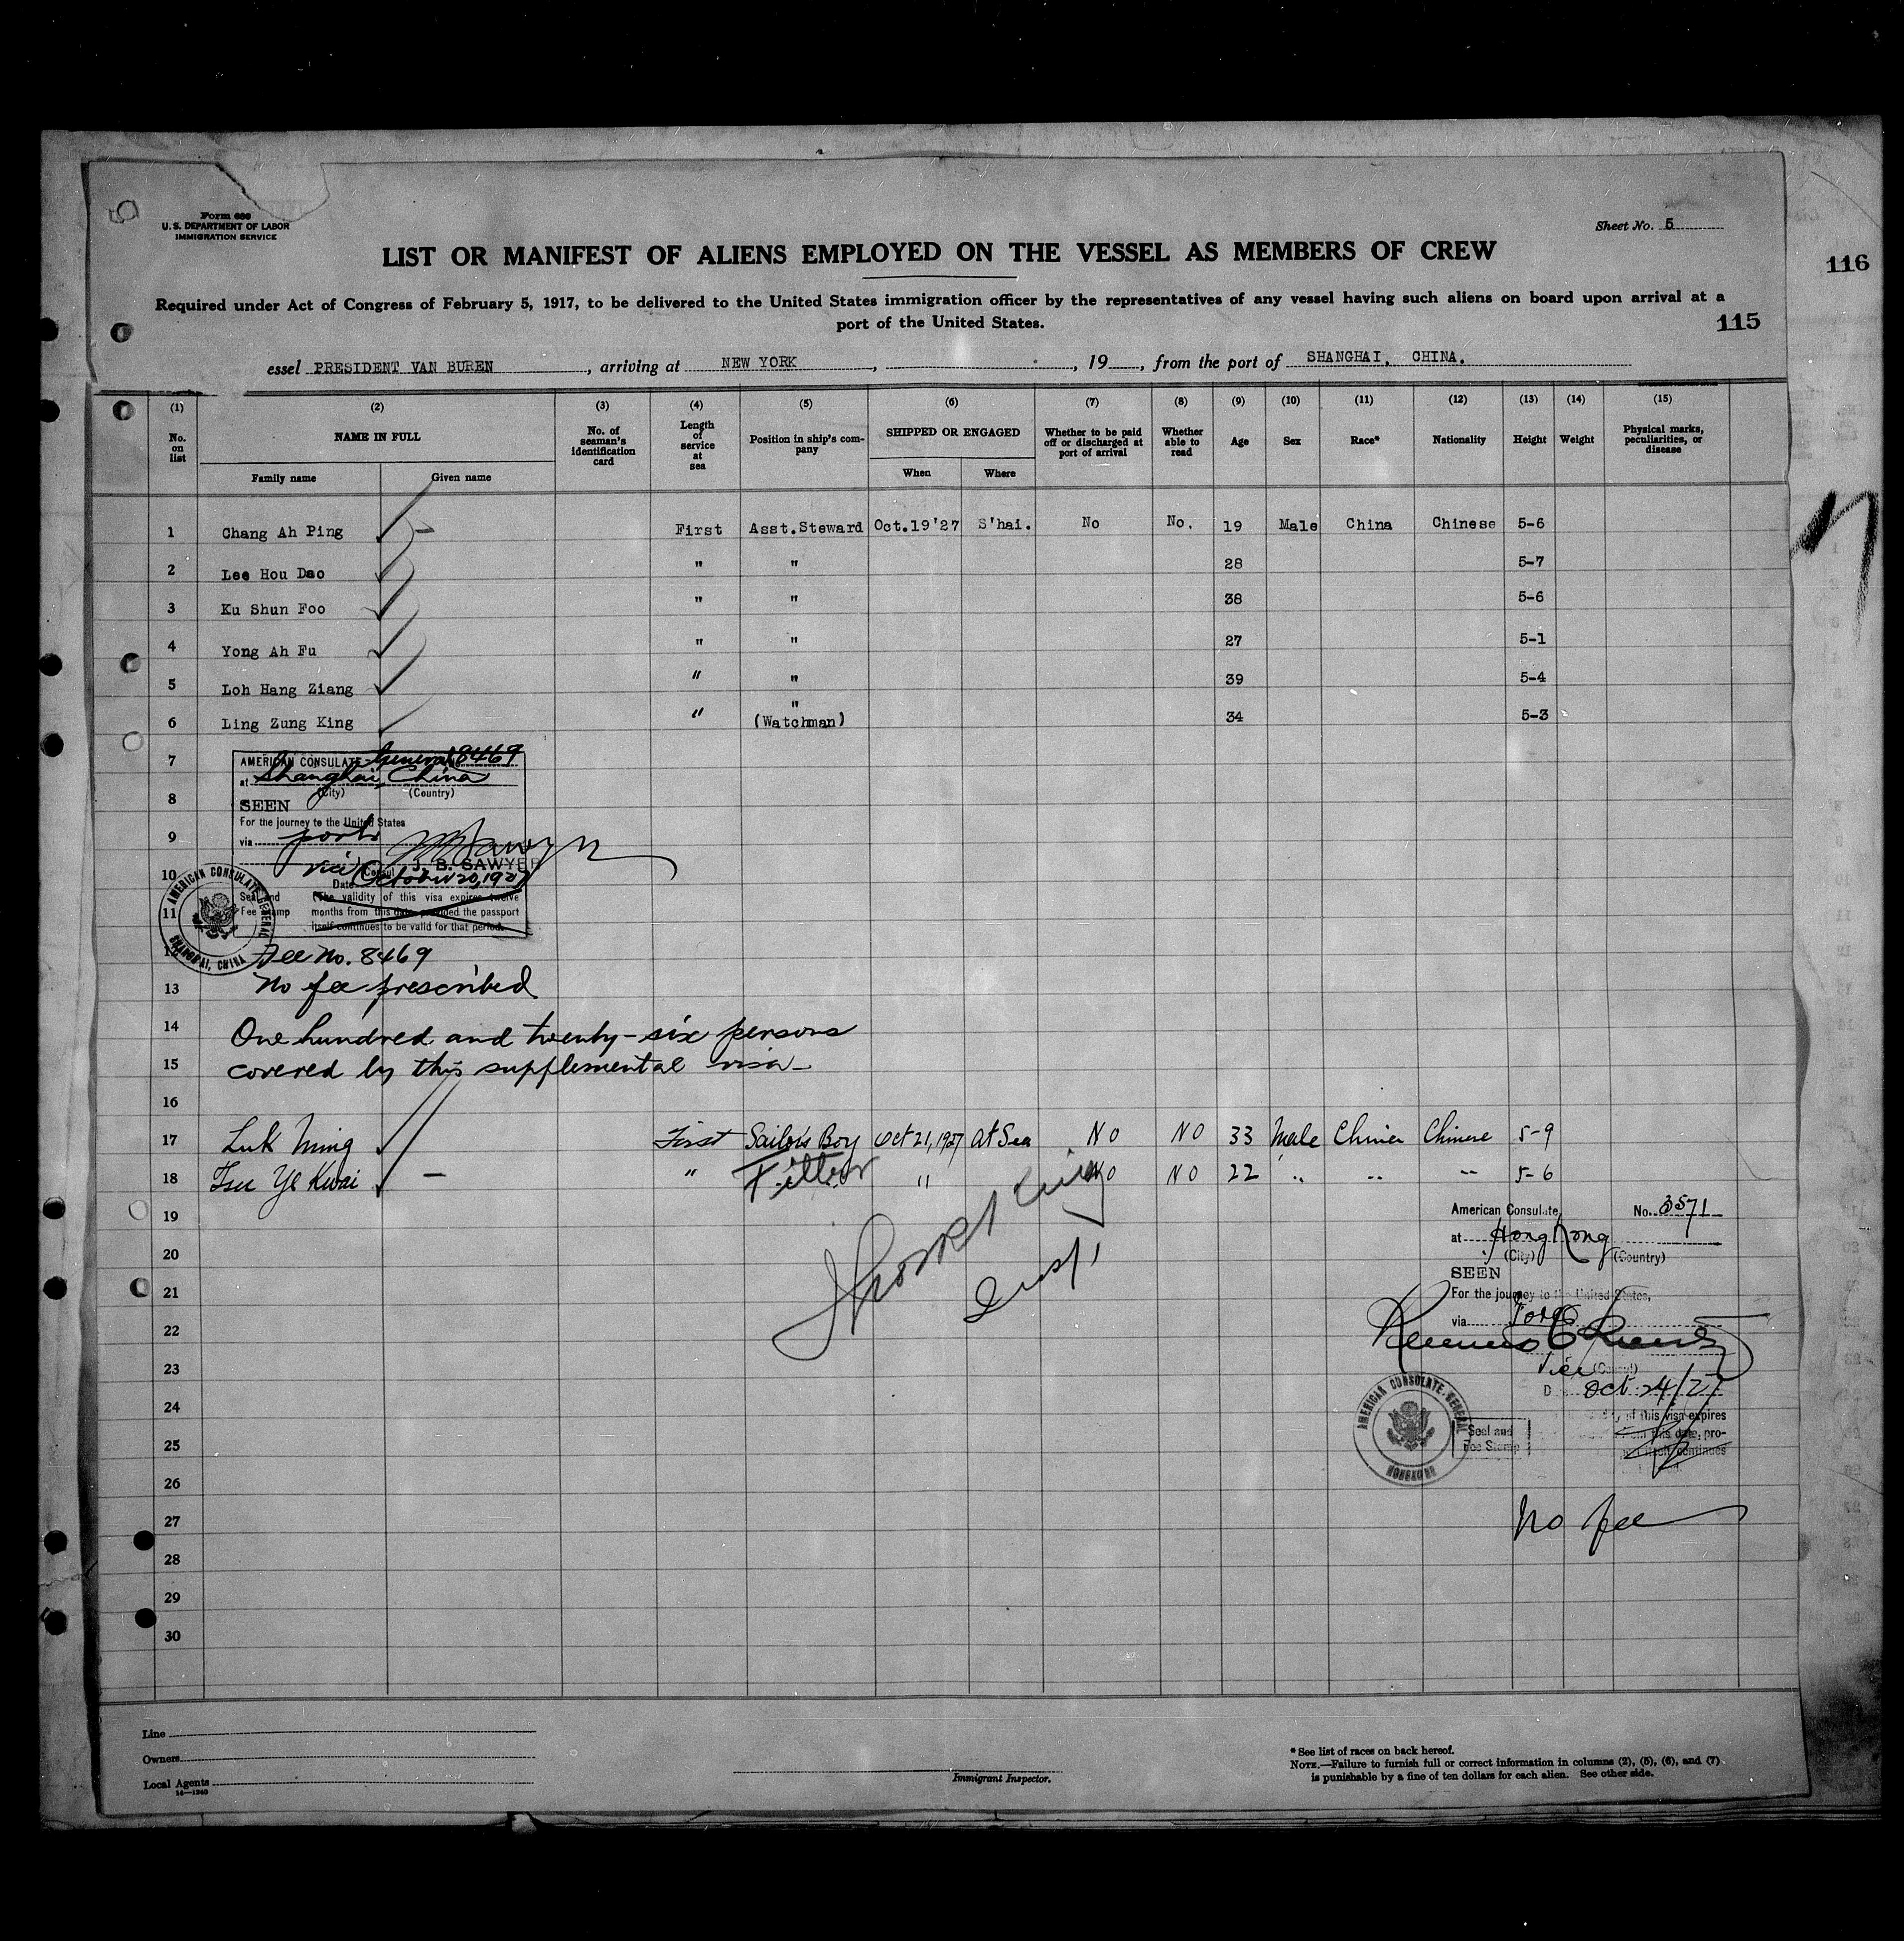 5
Form 680
U. S. DEPARTMENT OF LABOR
IMMIGRATION SERVICE
Sheet No. 5
LIST OR MANIFEST OF ALIENS EMPLOYED ON THE VESSEL AS MEMBERS OF CREW
116
Required under Act of Congress of February 5, 1917, to be delivered to the United States immigration officer by the representatives of any vessel having such aliens on board upon arrival at a
port of the United States.
115
essel PRESIDENT VAN BUREN, arriving at NEW YORK, , 19 , from the port of SHANGHAI, CHINA.
(1) (2) (3) (4) (5) (6) (7) (8) (9) (10) (11) (12) (13) (14) (15)
No. on list NAME IN FULL Family name Given name No. of seaman's identification card Length of service at sea Position in ship's company SHIPPED OR ENGAGED When Where Whether to be paid off or discharged at port of arrival Whether able to read Age Sex Race* Nationality Height Weight Physical marks, peculiarities, or disease
1 Chang Ah Ping First Asst.Steward Oct.19'27 S'hai. No No. 19 Male China Chinese 5-6
2 Lee Hou Dao " " 28 5-7
3 Ku Shun Foo " " 38 5-6
4 Yong Ah Fu " " 27 5-1
5 Loh Hang Ziang " " 39 5-4
6 Ling Zung King " " (Watchman) 34 5-3
7
AMERICAN CONSULATE General 8469
at Shanghai, China
8
(City) (Country)
SEEN
For the journey to the United States
9
via ports
10
Vice Consul J. B. SAWYER
Date October 20, 1927
11
Seal and Fee Stamp
(The validity of this visa expires twelve
months from this date, provided the passport
itself continues to be valid for that period.
AMERICAN CONSULATE GENERAL SHANGHAI, CHINA
Fee No. 8469
13 No fee prescribed
14 One hundred and twenty-six persons
15 covered by this supplemental visa-
16
17 Luk Ming First Sailor's Boy Oct 21, 1927 At Sea NO NO 33 Male China Chinese 5-9
18 Tsu Ye Kwai - " Fitter " NO NO 22 " " " 5-6
19
American Consulate, No. 3571
at Hong Kong
20
(City) (Country)
SEEN
21
For the journey to the United States,
22
via Ports
23
Vice (Consul)
D Oct 24/27
24
of this visa expires
from this date, pro-
continues
25
Seal and
Fee Stamp
AMERICAN CONSULATE GENERAL HONGKONG
26
27
No fee
28
29
30
Line
Owners
Local Agents
16—1240
Immigrant Inspector.
* See list of races on back hereof.
NOTE.—Failure to furnish full or correct information in columns (2), (5), (6), and (7)
is punishable by a fine of ten dollars for each alien. See other side.